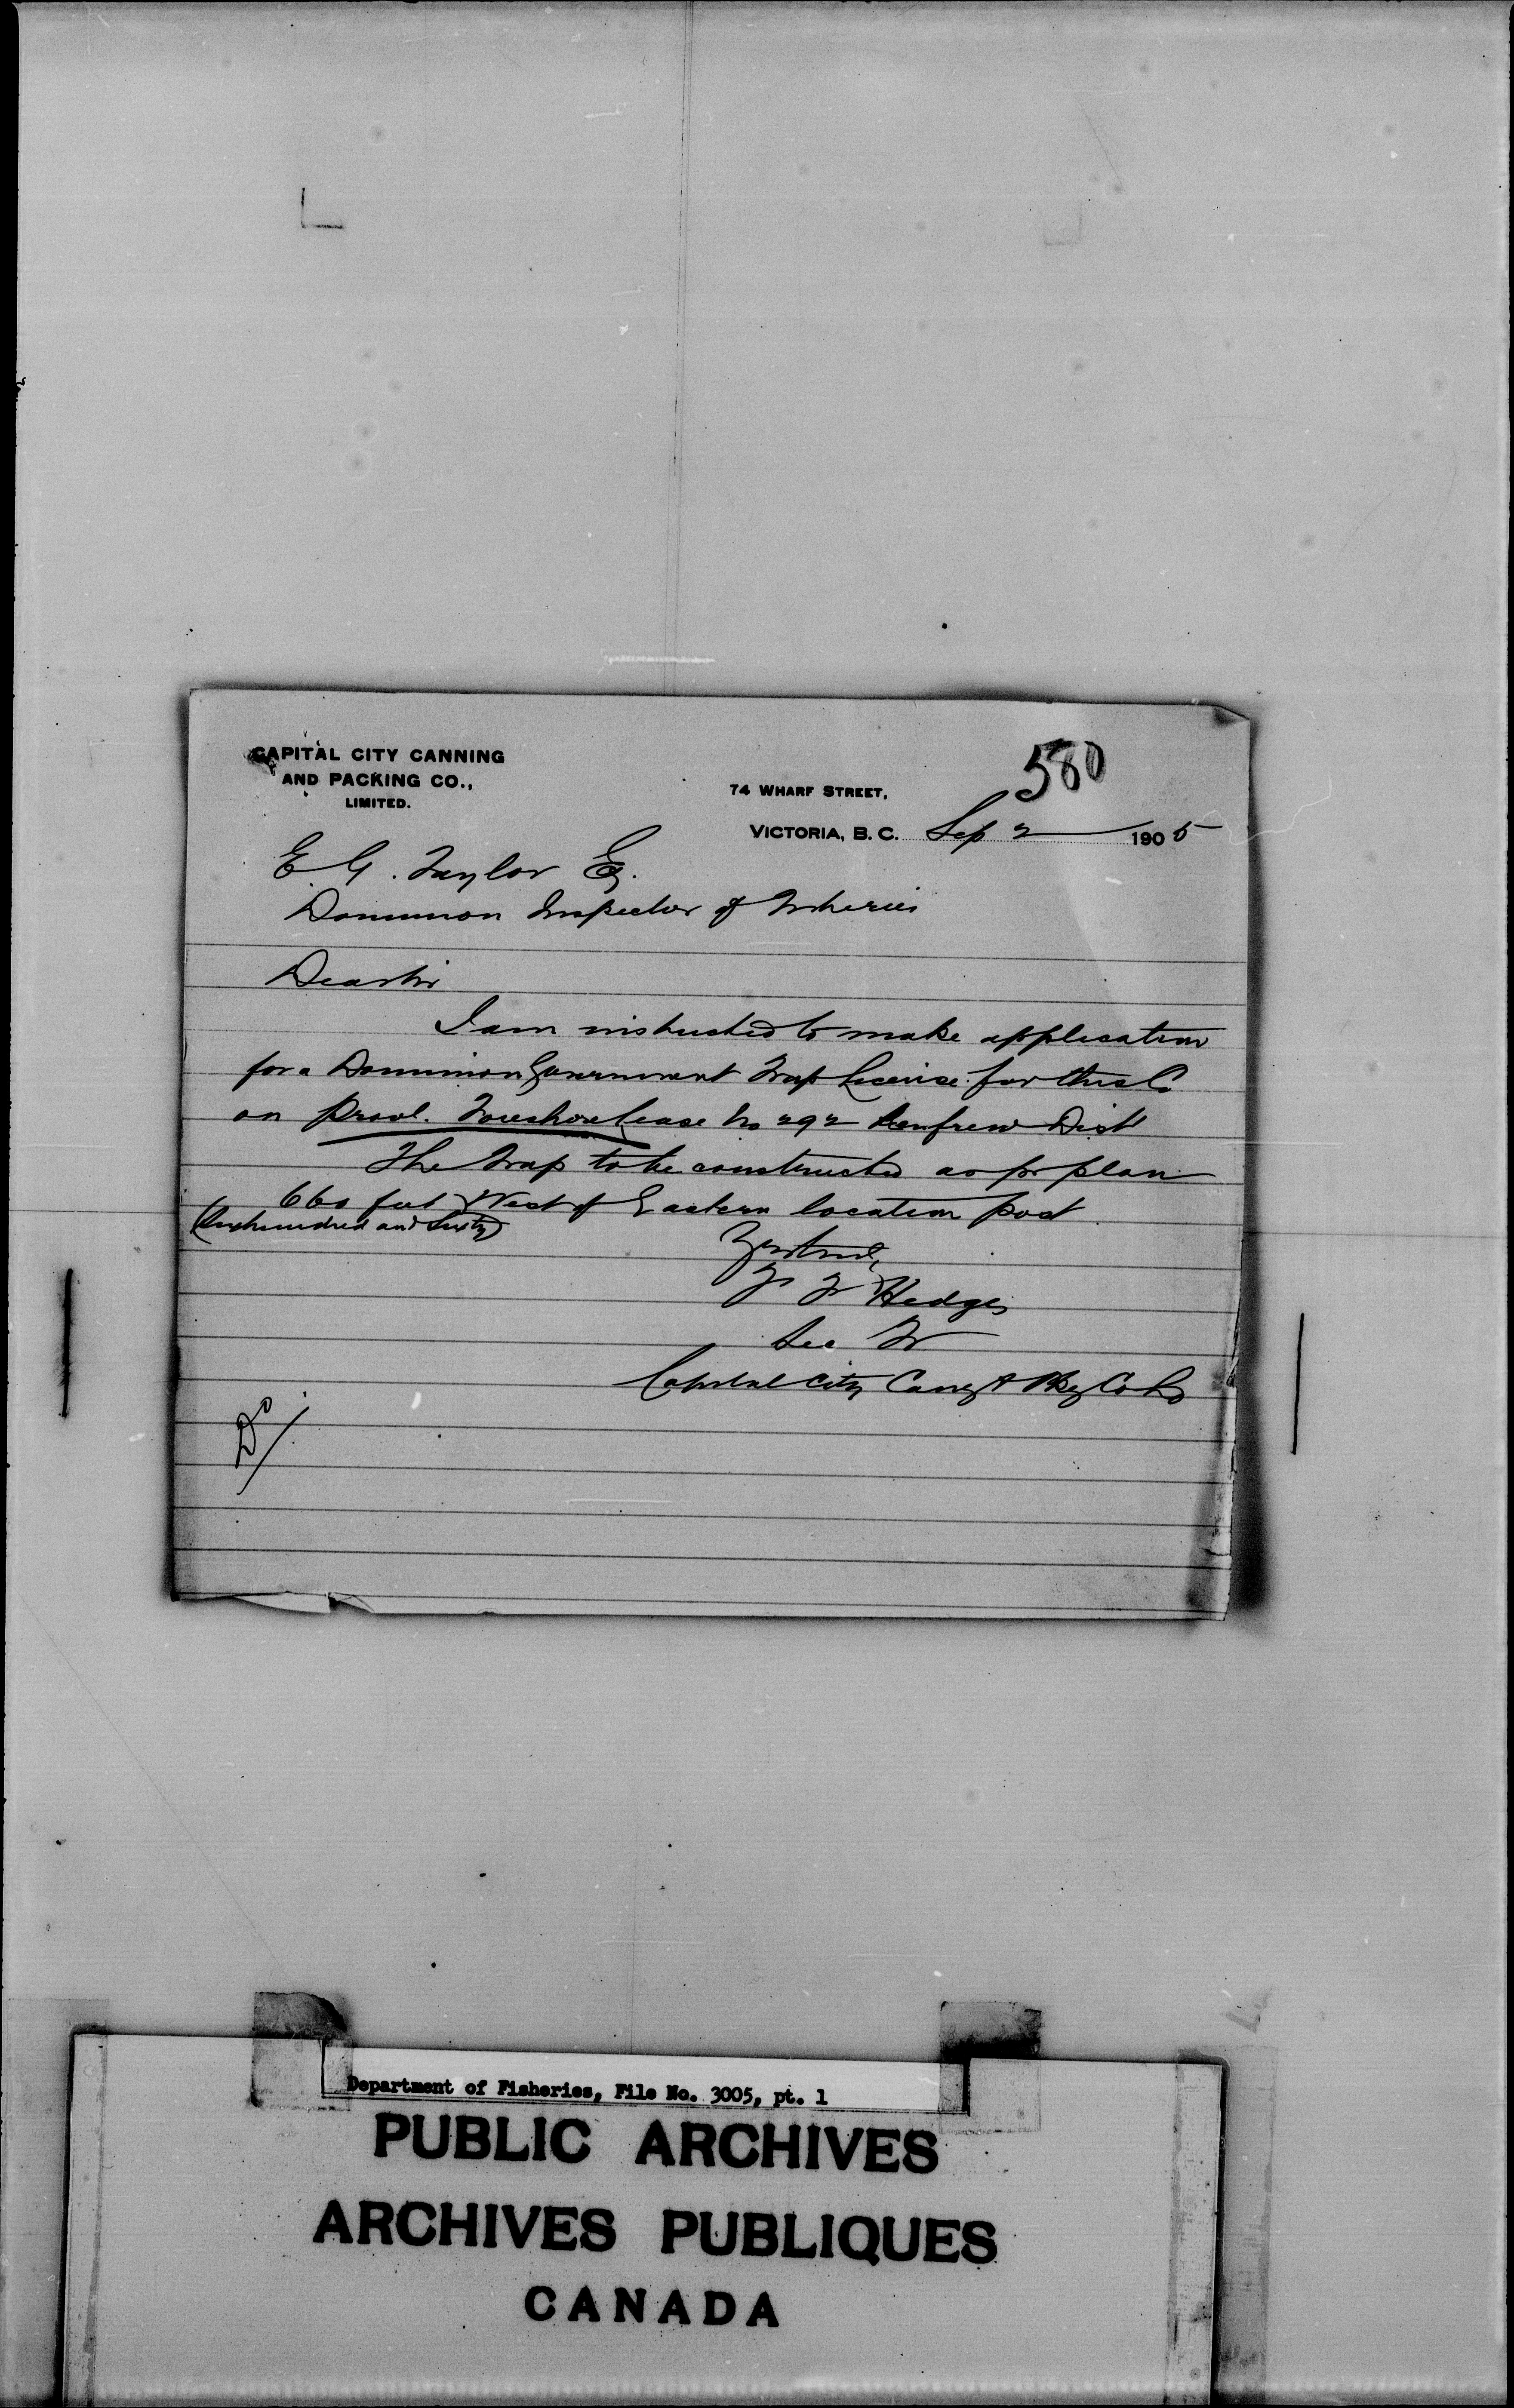 580
CAPITAL CITY CANNING
AND PACKING CO.,
LIMITED.
74 WHARF STREET,
VICTORIA, B.C. Sep 2 1905
E. G. Taylor Esq.
Dominion Inspector of Fisheries
Dear Sir
I am instructed to make application
for a Dominion Government Trap License for this Co
on Provl. Foreshore lease No 292 Renfrew Dist
The Trap to be constructed as pr plan
660 feet West of Eastern location post
(Six hundred and Sixty)
Yrs truly,
Hedges
Sec Tr
Capital City Cang & Pkg Co Ld
Do
Department of Fisheries, File No. 3005, pt. 1
PUBLIC ARCHIVES
ARCHIVES PUBLIQUES
CANADA